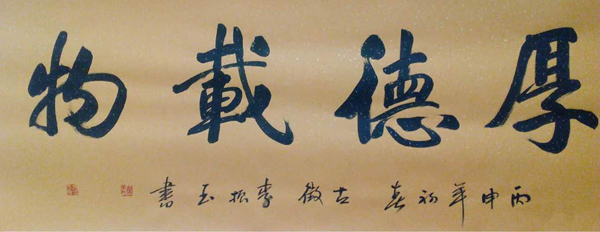 厚德載物
丙申年初春 古徽 李振玉 書